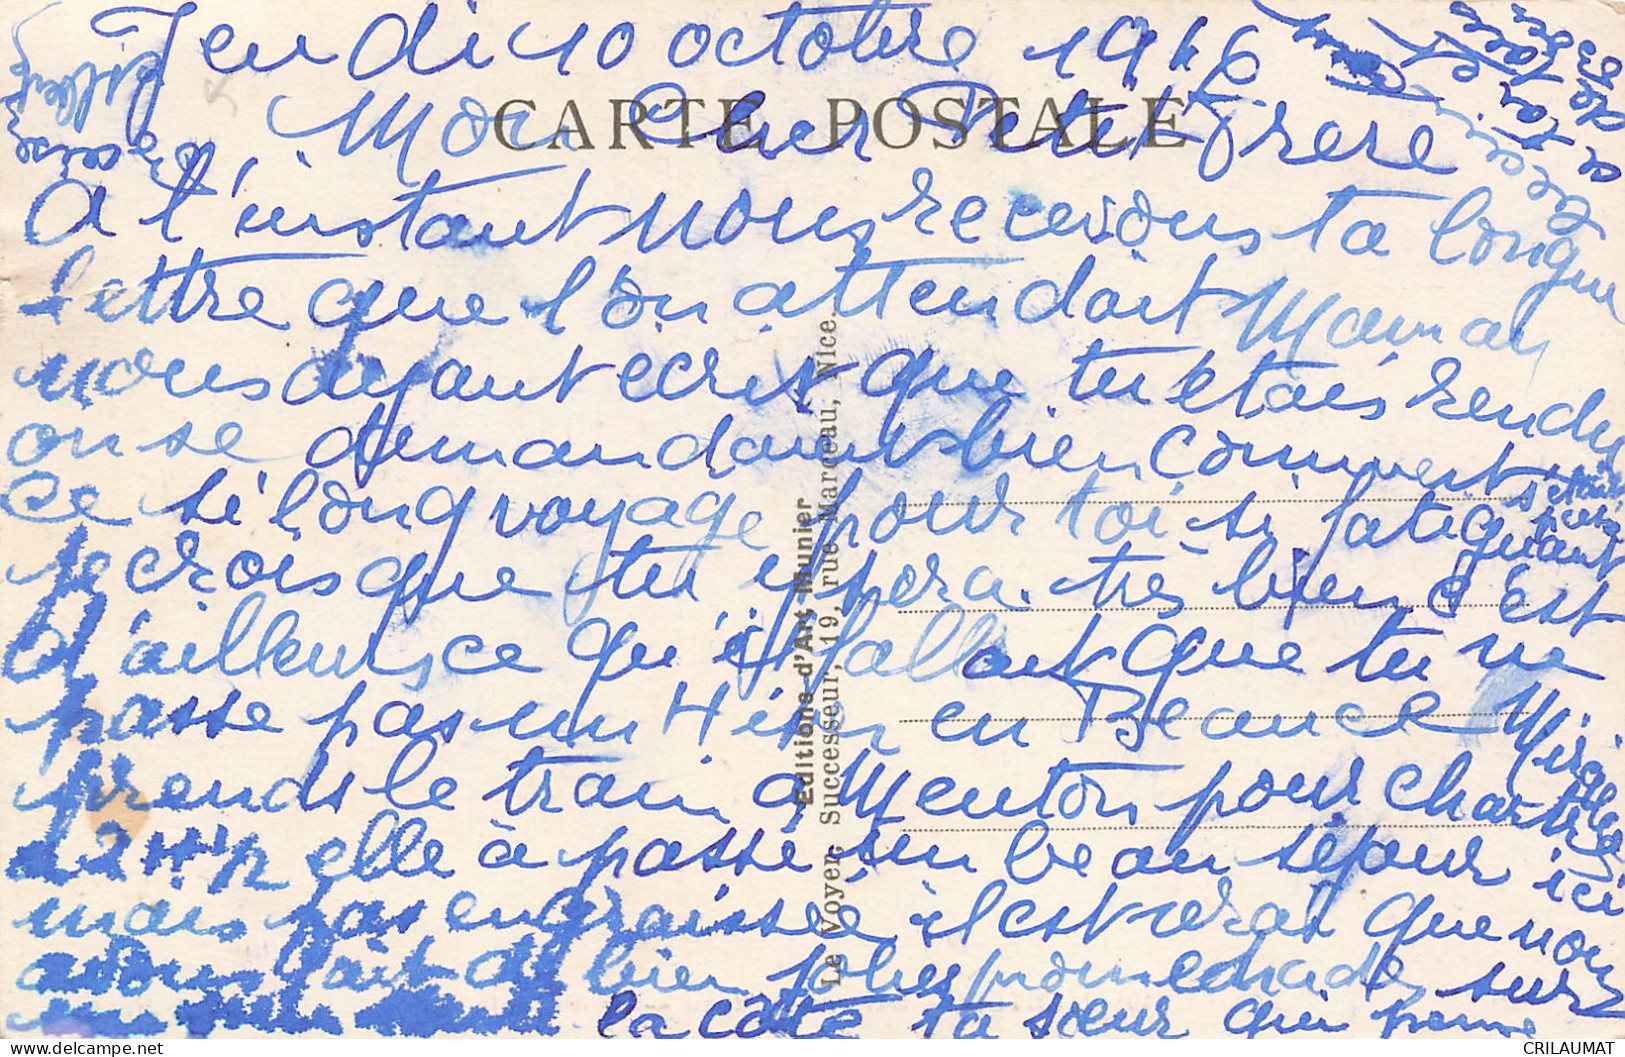 Jeudi 10 octobre 1946
CARTE POSTALE
Mon Cher Petit frere
A l'instant nous recevons ta longue
lettre que l'on attendait Maman
nous ayant ecrit que tu étais rendu
on se demandant bien comment
ce si long voyage pour toi si fatiguant
je crois que tu ypora très bien c'est
d'ailleurs ce qu'il fallait que tu ne
passe pas un Hiver en Beauce Mireille
prends le train a Menton pour Chartres
à 2 H 1/2 elle à passé un beau séjour ici
mais pas engraissée il est vrai que nous
avons fait de bien jolies promenades sur
la côte ta sœur qui pense
Editions d'Art Munier
Le Voyer, Successeur, 19, rue Marceau, Nice.
CRILAUMAT